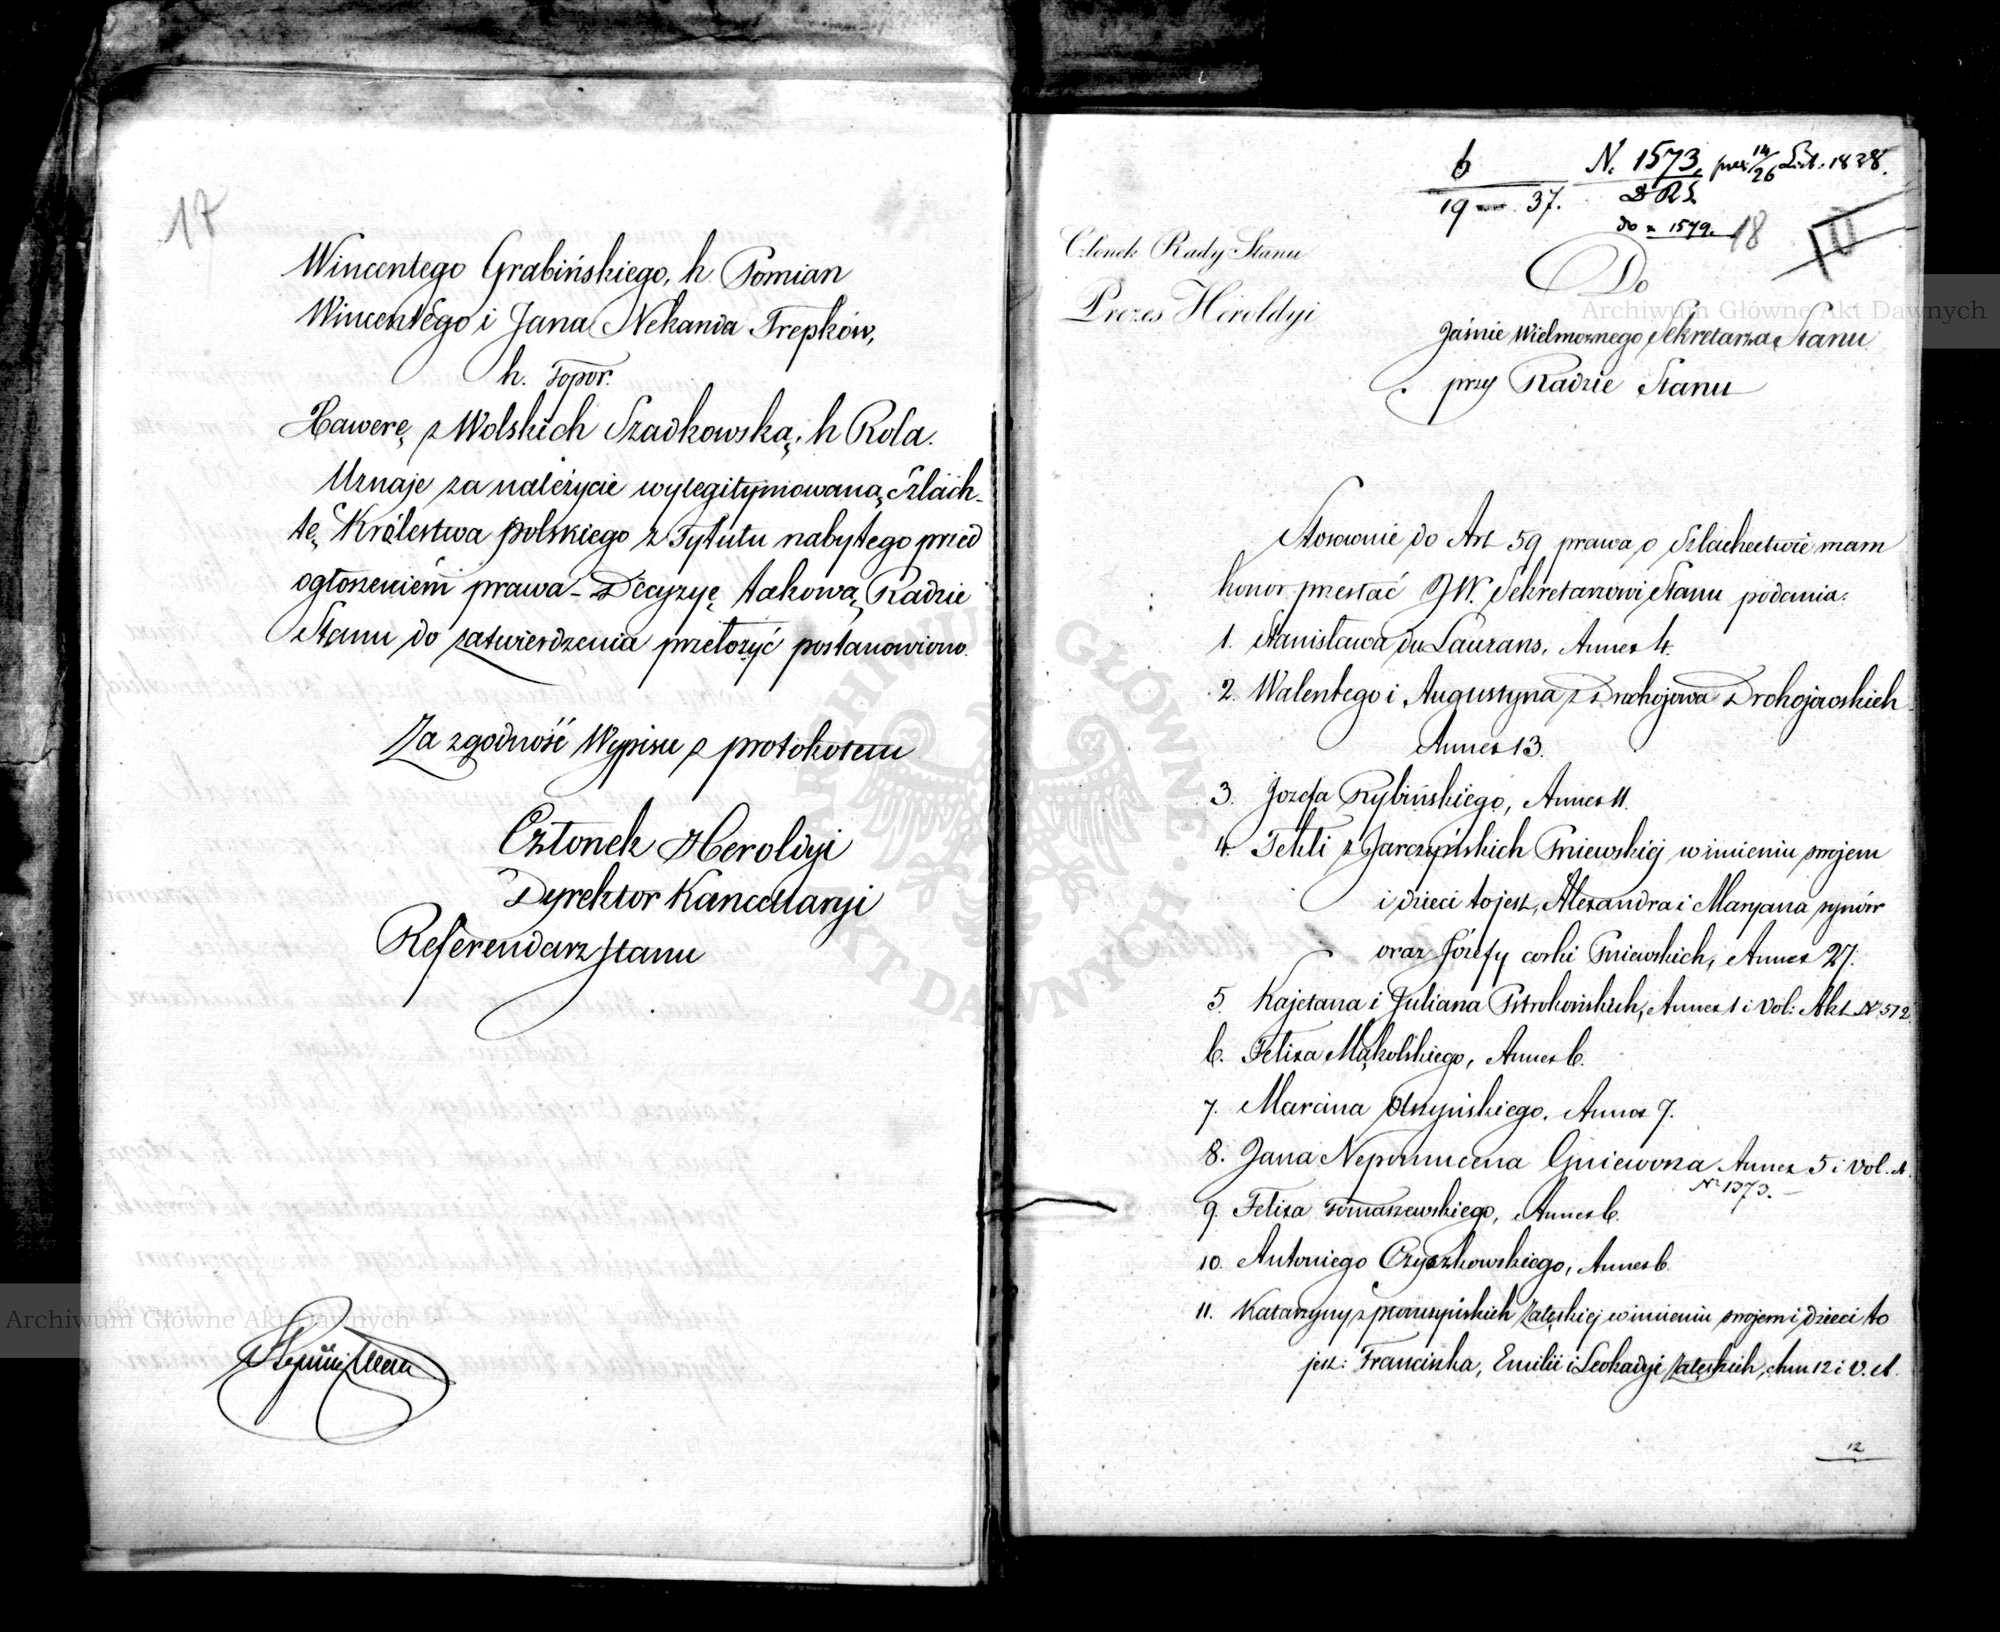 17
Wincentego Grabińskiego, h. Pomian
Wincentego i Jana Nekanda Trepków,
h. Topor.
Xawerę z Wolskich Szadkowską, h Rola.
Uznaje za należycie wylegitymowaną Szlach-
tę Królestwa Polskiego z Tytułu nabytego przed
ogłoszeniem prawa - Decyzyę takową Radzie
Stanu do zatwierdzenia przełożyć postanowiono.
Za zgodność Wypisu z protokołem
Członek Heroldyi
Dyrektor Kancellaryi
Referendarz Stanu
6
19 — 37.
N. 1573. prez 14/26 List. 1838.
DRS
do n 1579.
18
Członek Rady Stanu
Prezes Heroldyi
Do
Jaśnie Wielmożnego Sekretarza Stanu
przy Radzie Stanu
Stosownie do Art 59 prawa o Szlachectwie mam
honor przesłać JW. Sekretarzowi Stanu podania:
1. Stanisława du Laurans, Annex 4.
2. Walentego i Augustyna z Drohojowa Drohojowskich
Annex 13.
3. Jozefa Rybińskiego, Annex 11.
4. Tekli z Jarczyńskich Pniewskiej w imieniu swojem
i dzieci to jest, Alexandra i Maryana synów
oraz Józefy corki Pniewskich, Annex 27.
5. Kajetana i Juliana Pstrokońskich, Annex 1 i Vol: Akt N 512.
6. Felixa Mąkolskiego, Annex 6.
7. Marcina Olszyńskiego, Annex 7.
8. Jana Nepomucena Gniewosza Annex 5 i Vol. A.
Nr 1373.
9. Felixa Tomaszewskiego, Annex 6.
10. Antoniego Czyszkowskiego, Annex 6.
11. Katarzyny z Załęskiej w imieniu swojem i dzieci to
jest: Franciszka, Emilii i Leokadyi Załęskich, Ann 12 i V. A.
12
Archiwum Główne Akt Dawnych
Archiwum Główne Akt Dawnych
ARCHIWUM GŁÓWNE AKT DAWNYCH